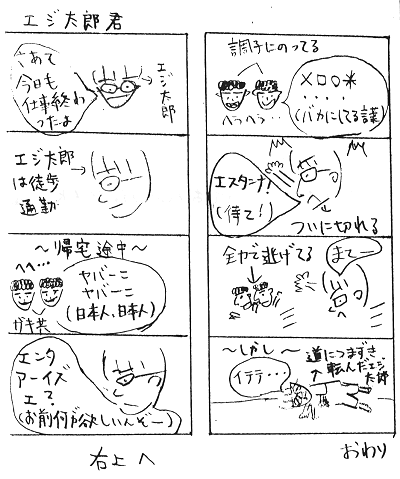 エジ太郎君
さあて
今日も
仕事終わ
ったよ
エジ太郎
エジ太郎
は徒歩
通勤
～帰宅途中～
へへ…
ヤバーニ
ヤバーニ
(日本人、日本人)
ガキ共
エンタ
アーイズ
エ?
(お前何が欲しいんぞー)
右上へ
調子にのってる
へラへラ…
×□○*
....
(バカにしてる言葉)
エスタンナ!
(待て!)
ついに切れる
全力で逃げてる
まてー
～しかし～
道につまずき
転んだエジ
太郎
イテテ…
おわり